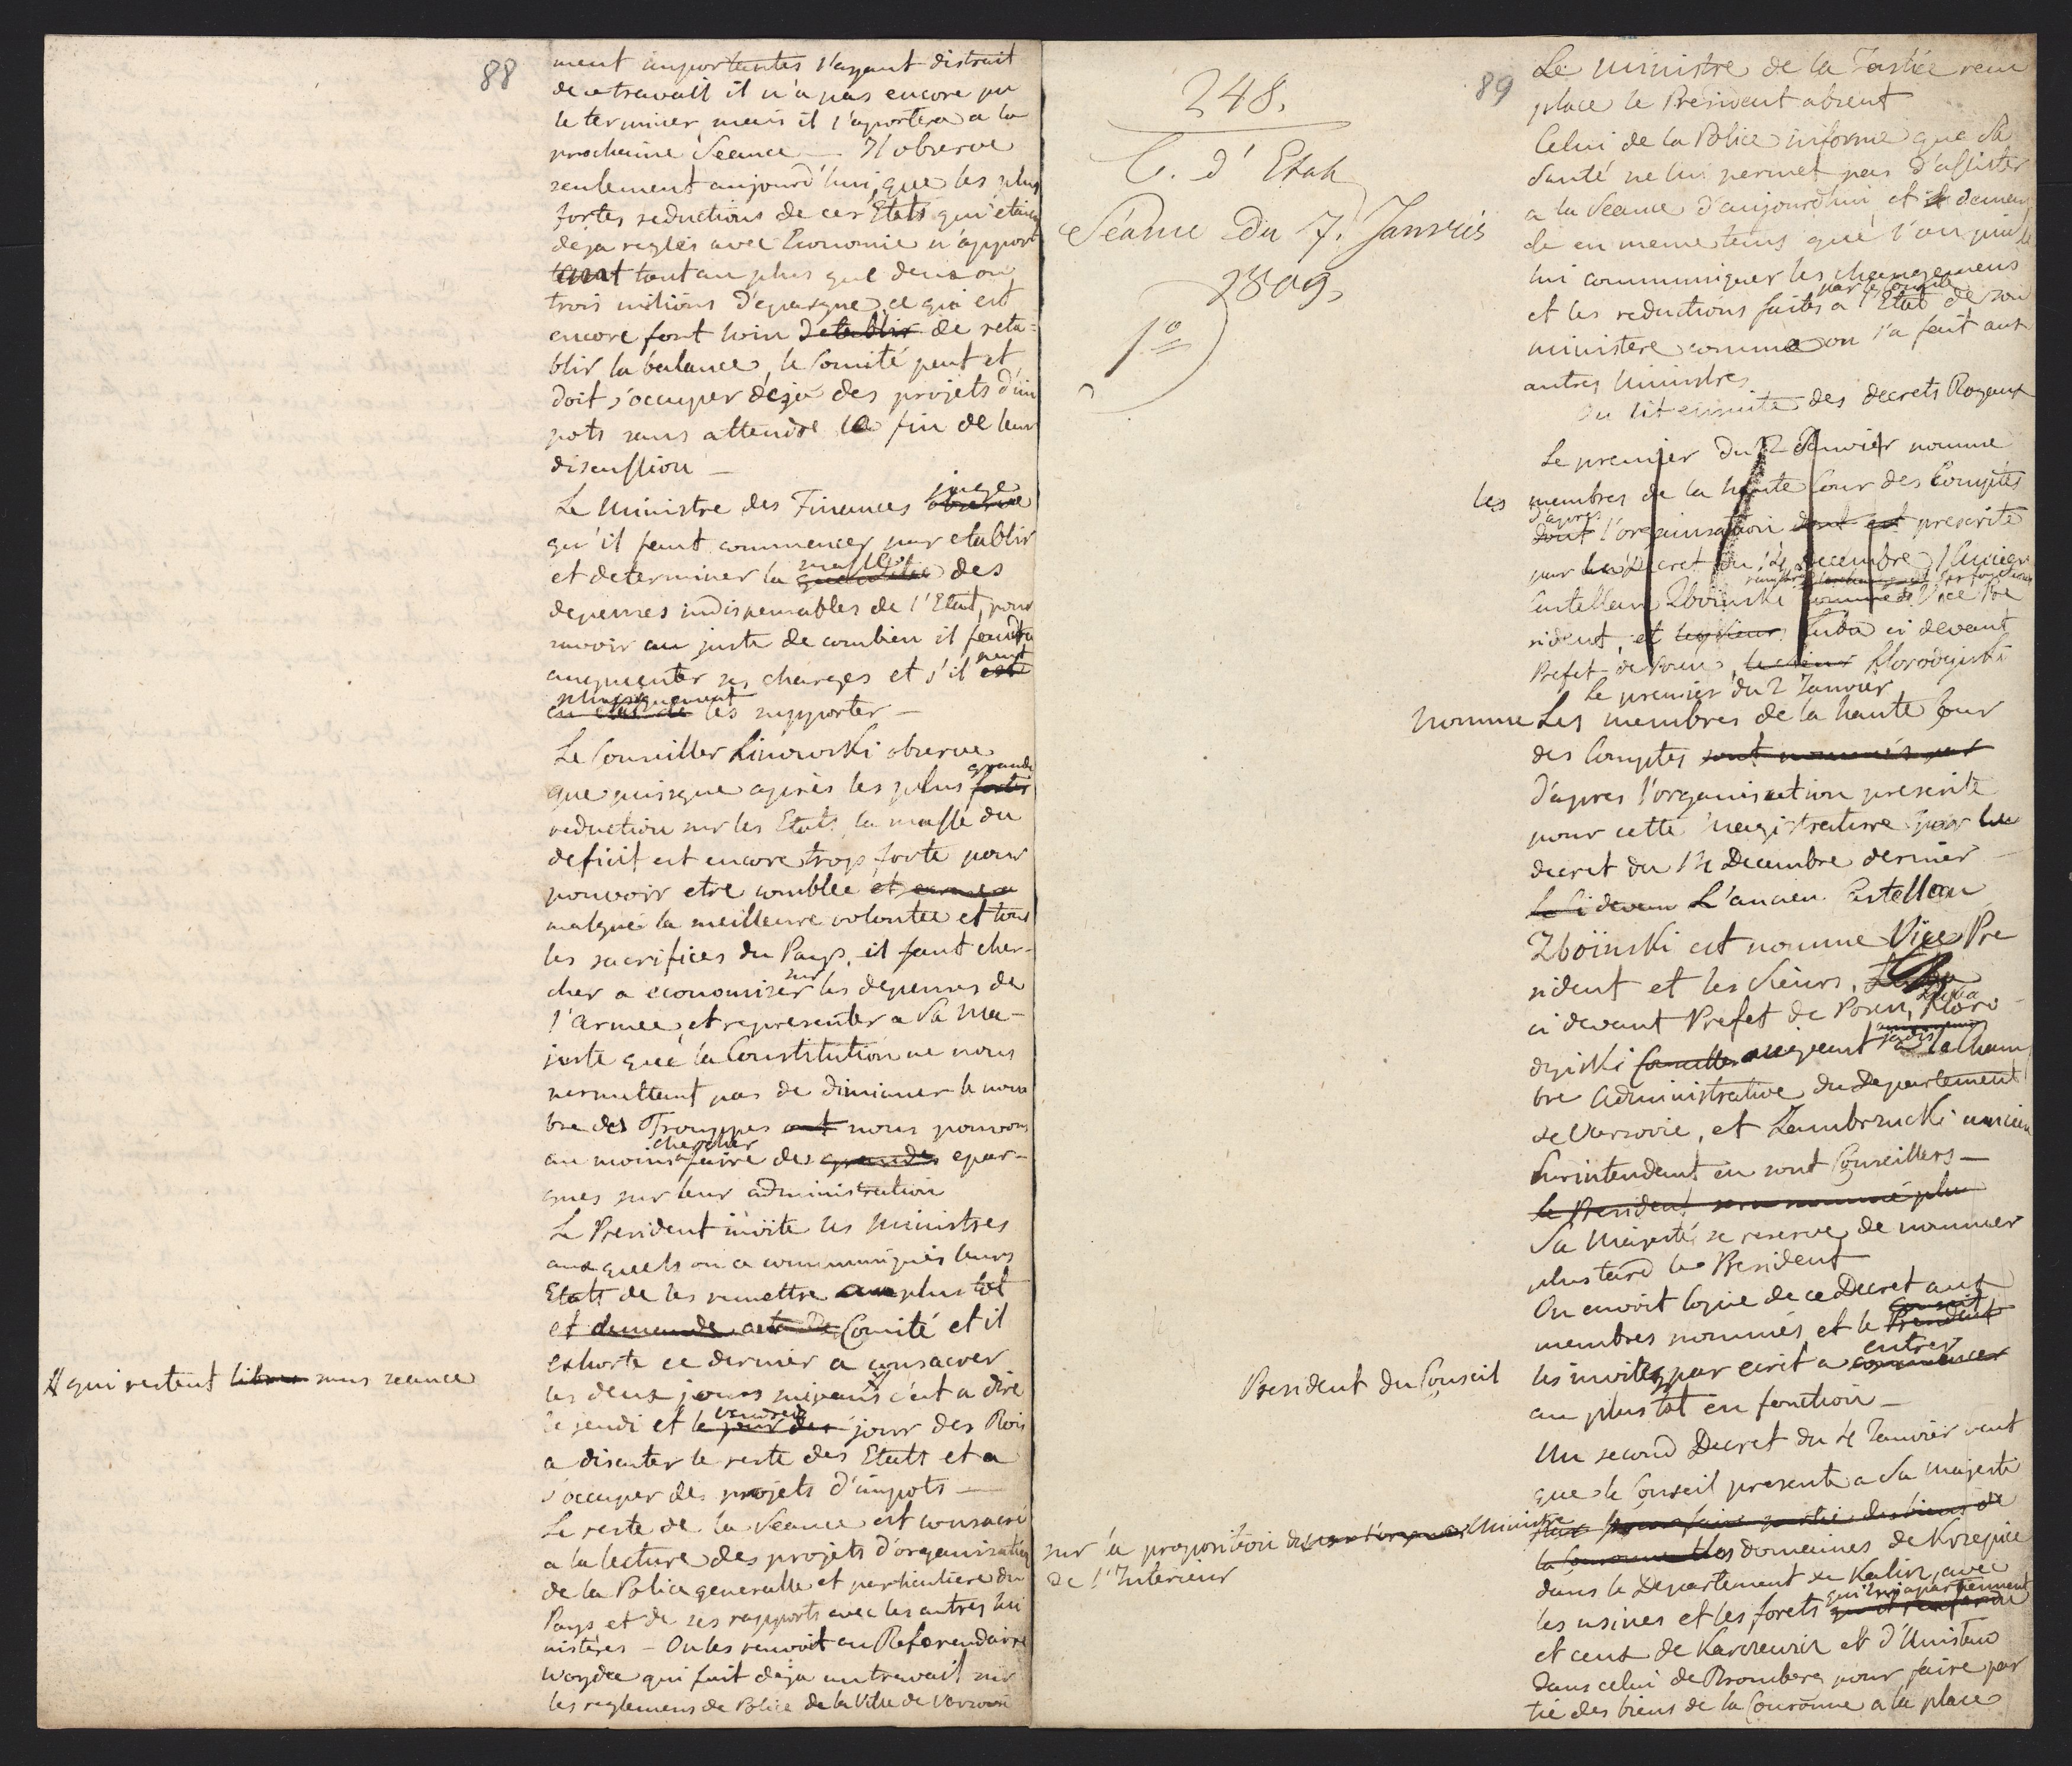 88
ment importantes l'ayant distrait
de ce travail il n'a pas encore pu
le terminer mais il l'aportera a la
prochaine Seance — Il observe
seulement aujourd'hui, que les plus
fortes reductions de ces Etats qui etaient
deja reglés avec Economie n'apport
tout au plus que deux ou
trois milions d'epargne, ce qui est
encore fort loin d'etablir de reta=
blir la balance, le Comité peut et
doit s'occuper deja des projets d'im
pots sans attendre la fin de leur
discussion —
juge
Le Ministre des Finances observe
qu'il faut commencer par etablir
masse
et determiner la quantité des
depenses indispensables de l'Etat, pour
savoir au juste de combien il faudra
peut
augmenter ses charges et s'il est
en etat de les supporter —
Le Conseiller Linowski observe
grande
que puisque après les plus fortes
reduction sur les Etats, la masse du
deficit est encore trop forte pour
pouvoir etre comblée et
malgré la meilleure volonté et tous
les sacrifices du Pays, il faut cher-
sur
cher a economiser les depenses de
l'armée, et representer a Sa Ma-
jesté que la Constitution ne nous
permettant pas de diminuer le nom
bre des Trouppes nous pouvons
chercher
au moins a faire des grandes epar-
gnes sur leur administration
Le President invite les Ministres
aux quels on a communiqués leurs
Etats de les remettre au plus tot
et demande au Comité et il
exhorte ce dernier a consacrer
les deux jours suivants c'est a dire
# qui restent libres sans seance
vendredi
le jeudi et le jour des jour des Rois
a discuter le reste des Etats et a
s'occuper des projets d'impots —
Le reste de la Seance est consacré
a la lecture des projets d'organisation
de la Police generalle et particuliere du
Pays et de ses rapports avec les autres Mi
nistères — On les renvoit au Referendaire
Woyda qui fait deja un travail sur
les reglemens de Police de la Ville de Varsovie
248.
C. d'Etat
Séance du 7. Janvier
1809.
1º
89
Le Ministre de la Justice rem
place le President absent
Celui de la Police informe que Sa
Santé ne lui permet pas d'assister
a la Seance d'aujourdhui et il deman
de en meme tems que l'on puisse
lui communiquer les changemens
par le Comité
et les reductions faites a l'Etat de son
ministere comme on l'a fait aux
autres Ministres
On lit ensuite des decrets Royaux
Le premier du 2 Janvier nomme
les membres de la haute Cour des Comptes
d'après
dont l'organisation dont est prescrite
par le Decret du 14 Decembre, l'Ancien
Castellan Zboinski nommé Vice Pre
sident, et les Sieurs Luba ci devant
Prefet de Posen, le Sieur Klorodzinski
Le premier du 2 Janvier
nomme Les membres de la haute Cour
des Comptes sont nommés par
d'apres l'organisation prescrite
pour cette magistrature par le
decret du 14 Decembre dernier —
le ci devan L'ancien Castellan
Zboinski est nomme Vice Pre
sident et les Sieurs,
Luba
ci devant Prefet de Posen, Kloro
dzinski Conseiller siegeant jadis a la Cham
bre Administrative du Departement
de Varsovie, et Zambrzucki ancien
Surintendent en sont Conseillers —
le President sera nommé plus
Sa Majesté se reserve de nommer
plus tard le President
On envoit copie de ce Decret aux
membres nommés, et le President
President du Conseil
entrer
les invite par ecrit a commencer
au plus tot en fonction —
Un second Decret du 4 Janvier veut
que le Conseil presente a Sa Majesté
sur la proposition du Ministre
de l'Interieur
pour faire partie des biens de
la Couronne les domaines de Krzepice
dans le Departement de Kalisz, avec
qui lui apartiennent
les usines et les forets
et ceux de et d'
dans celui de Bromberg pour faire par
tie des biens de la Couronne a la place